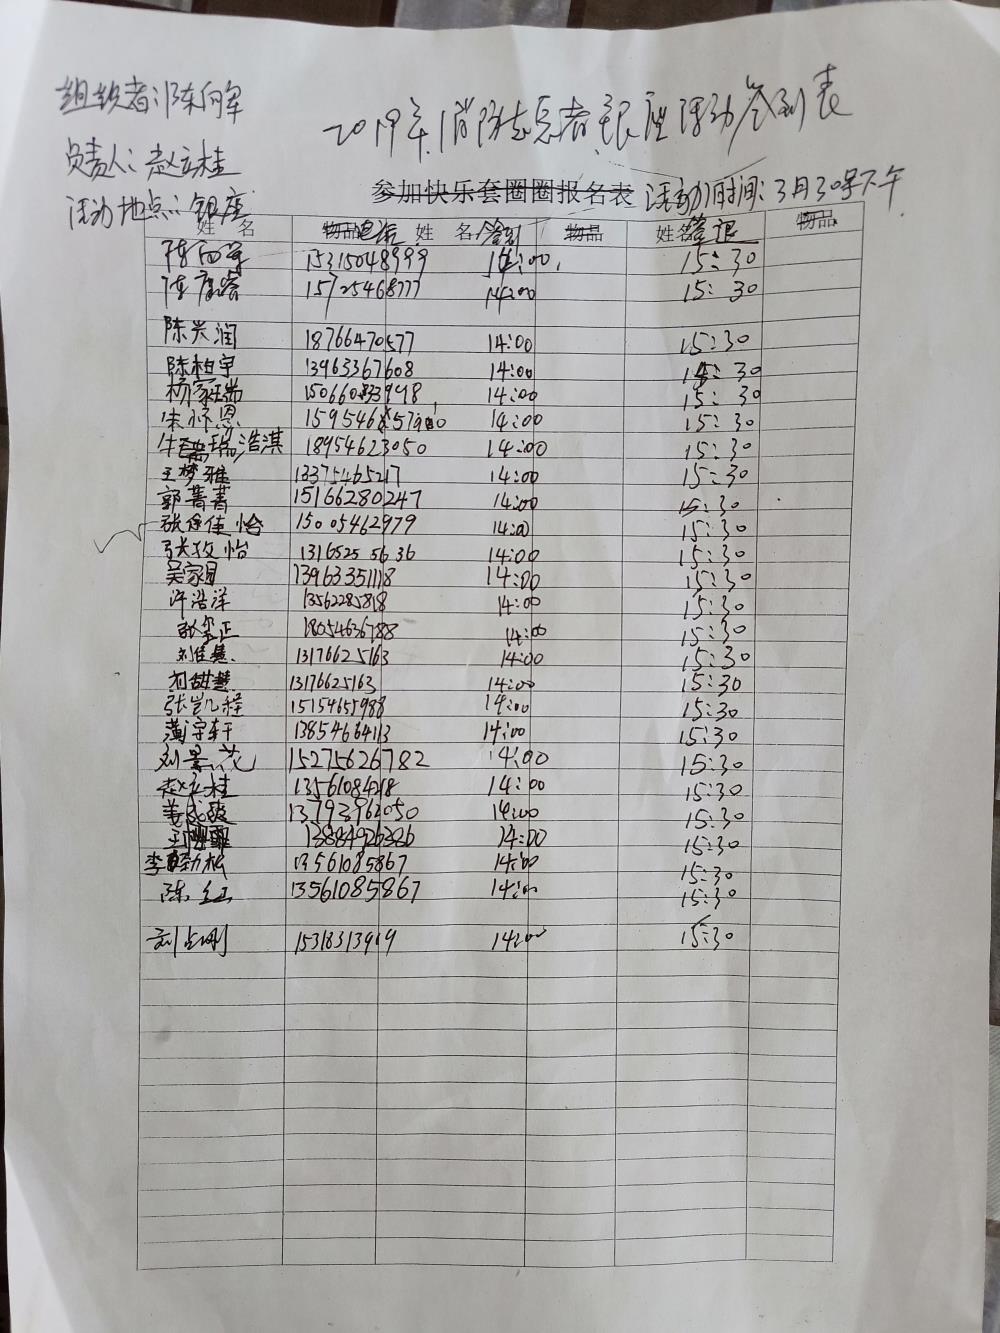 组织者:陈向军
2019年消防志愿者银座活动签到表
负责人:赵立桂
参加快乐套圈圈报名表 活动时间:3月30号下午
活动地点:银座
姓 名 物品 电话 姓 名 签到 物品 姓名 签退 物品
陈向军 15315048999 14:00 15:30
陈彦睿 15725468777 14:00 15:30
陈兴润 18766470577 14:00 15:30
陈柏宇 13963367608 14:00 15:30
杨家瑞 15066083998 14:00 15:30
朱怀恩 1595468 14:00 15:30
牛 瑞浩淇 18954623050 14:00 15:30
王梦雅 13375465217 14:00 15:30
郭菁菁 15166280247 14:00 15:30
张徐佳怡 15005462979 14:00 15:30
张孜怡 13165255636 14:00 15:30
吴家 13963351118 14:00 15:30
许浩洋 13562285818 14:00 15:30
正 18054636788 14:00 15:30
刘佳慧 13176625163 14:00 15:30
刘甜慧 13176625163 14:00 15:30
张凯程 15154655988 14:00 15:30
宇轩 13854664113 14:00 15:30
刘景花 15275626782 14:00 15:30
赵立桂 13561084218 14:00 15:30
姜 13793962050 14:00 15:30
王 13884926326 14:00 15:30
李劲松 13561085867 14:00 15:30
陈红 13561085867 14:00 15:30
刘占刚 15318313919 14:00 15:30